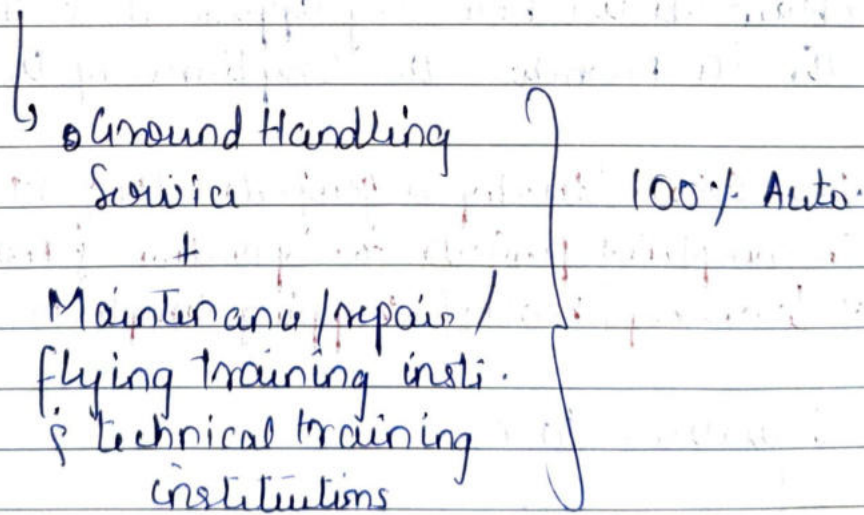 Ground Handling
Service
100% Auto.
+
Maintenance/repair/
flying training insti.
& technical training
institutions